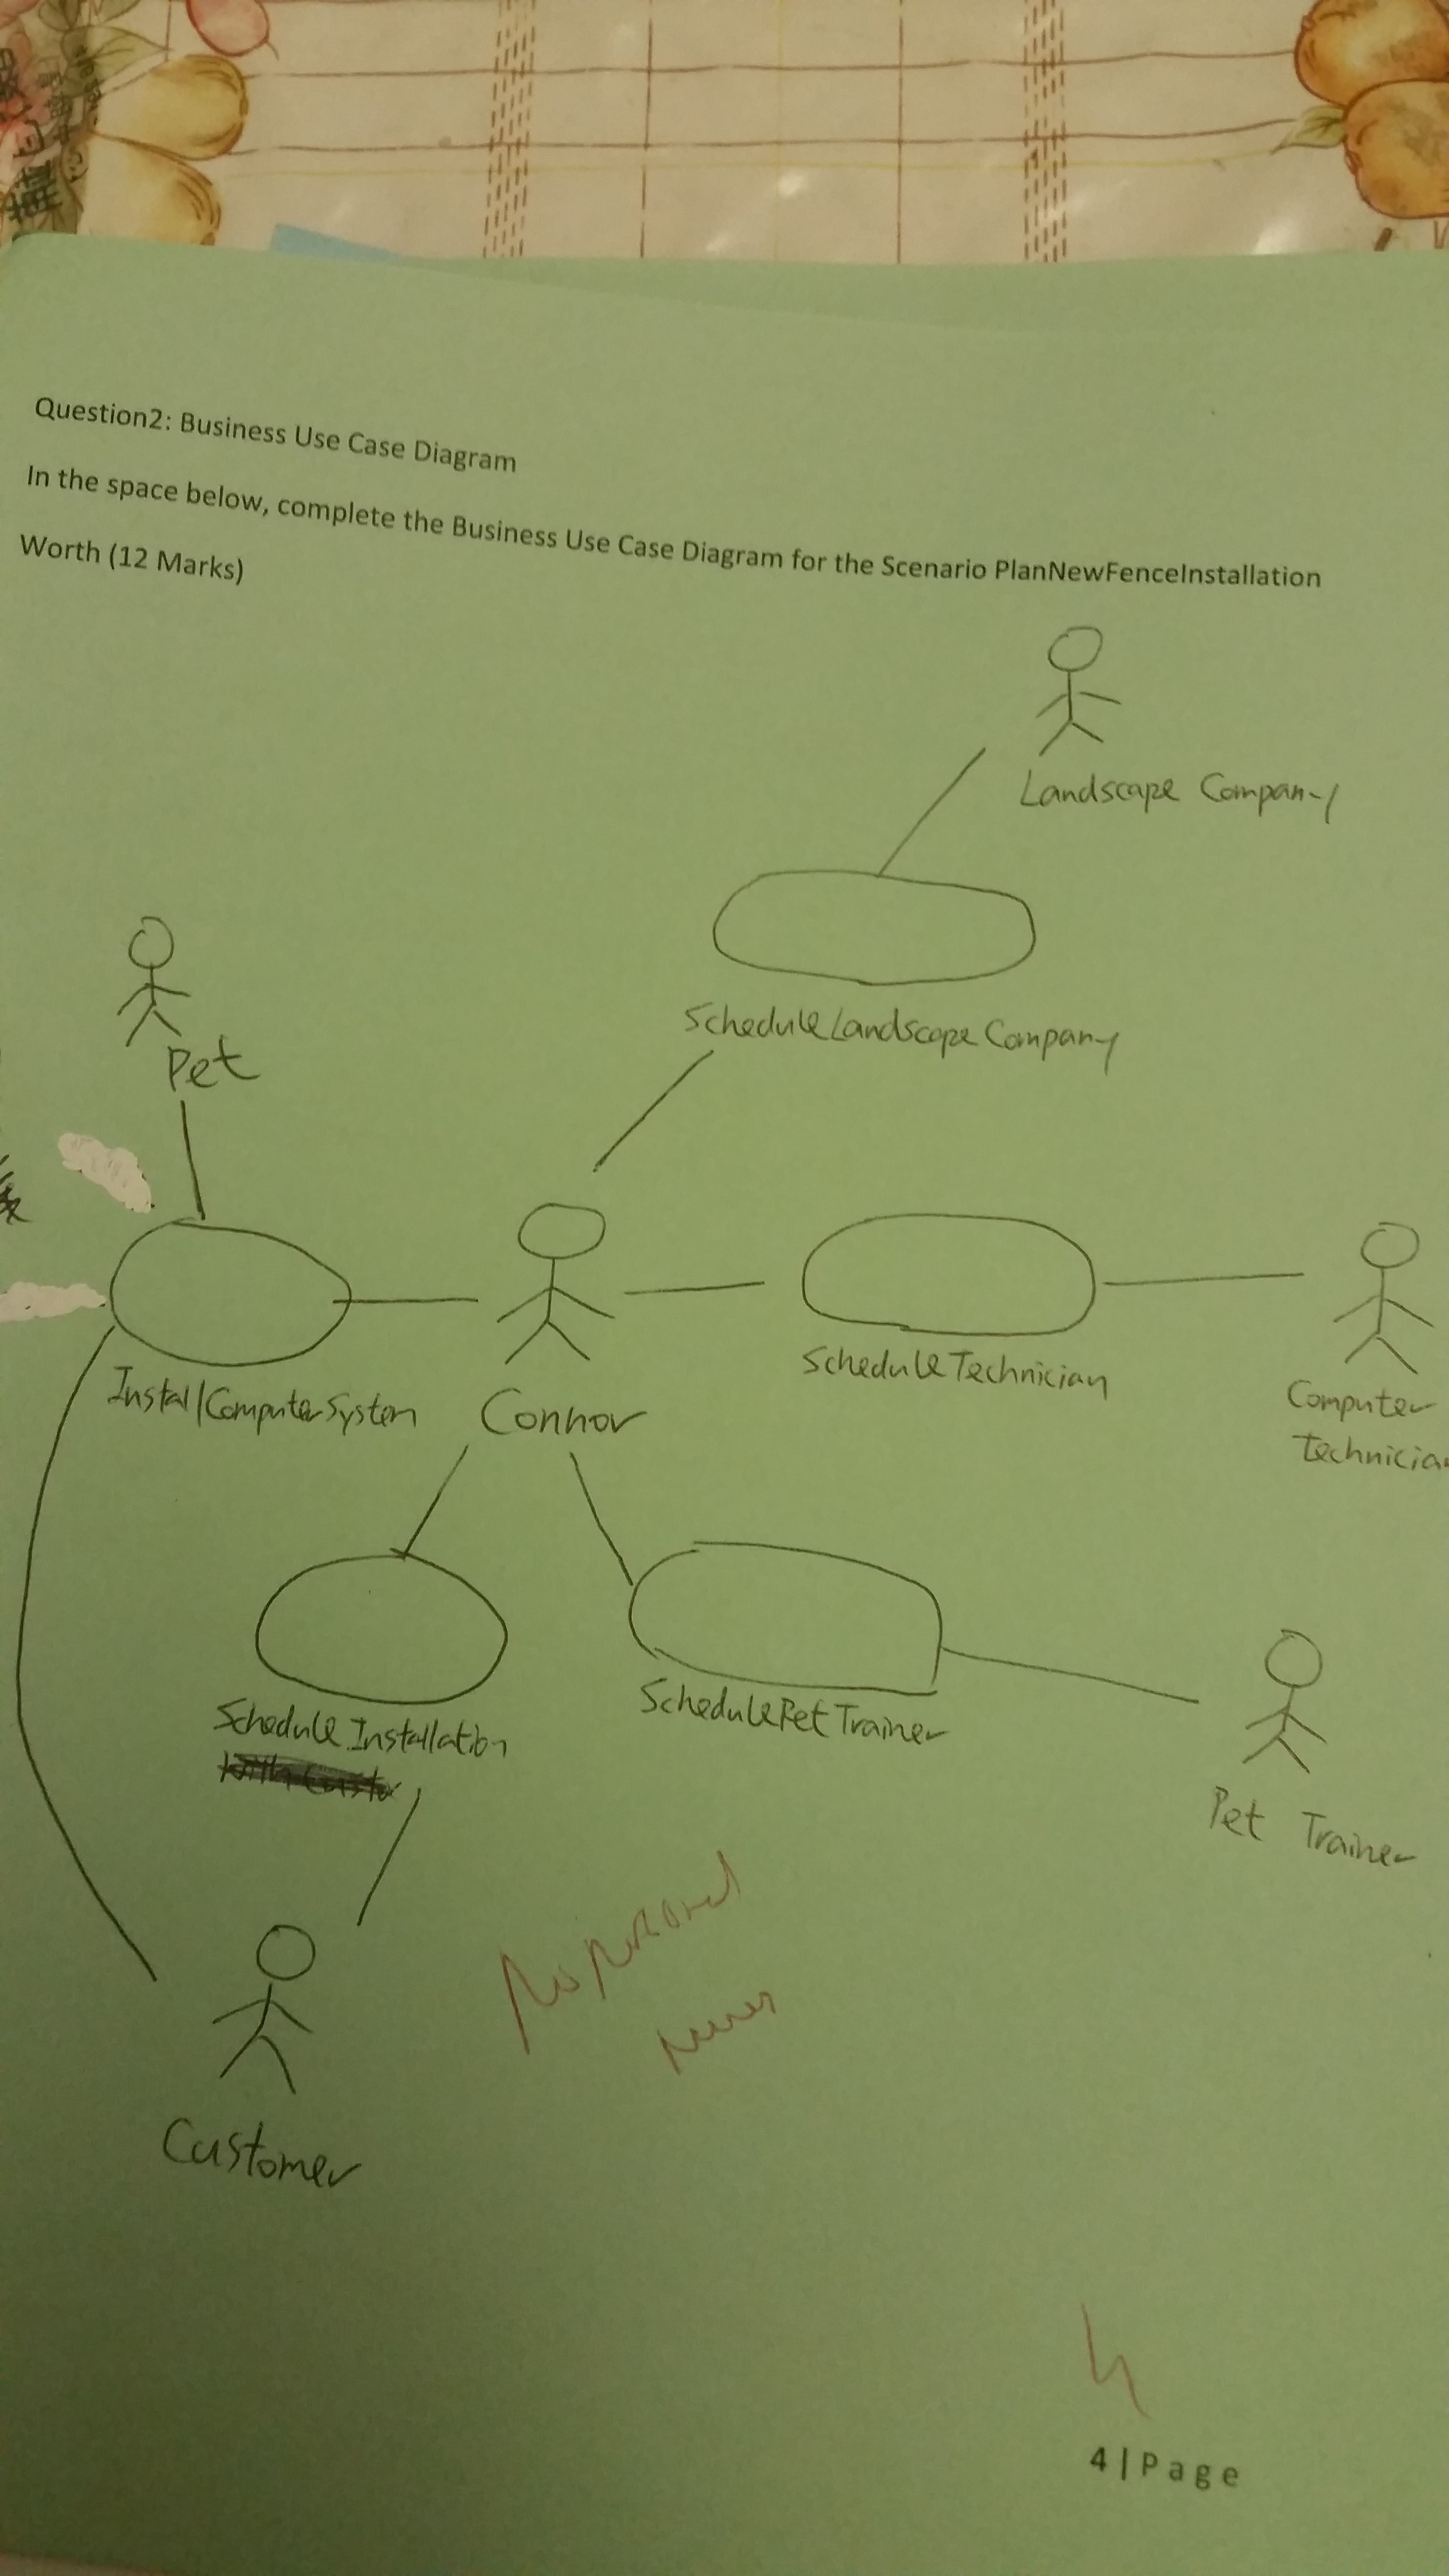 Question2: Business Use Case Diagram
In the space below, complete the Business Use Case Diagram for the Scenario PlanNewFenceInstallation
Worth (12 Marks)
Landscape Company
ScheduleLandscapeCompany
Pet
InstallComputerSystem
Connor
ScheduleTechnician
Computer
Technician
ScheduleInstallation
SchedulePetTrainer
Pet Trainer
Customer
4 | Page